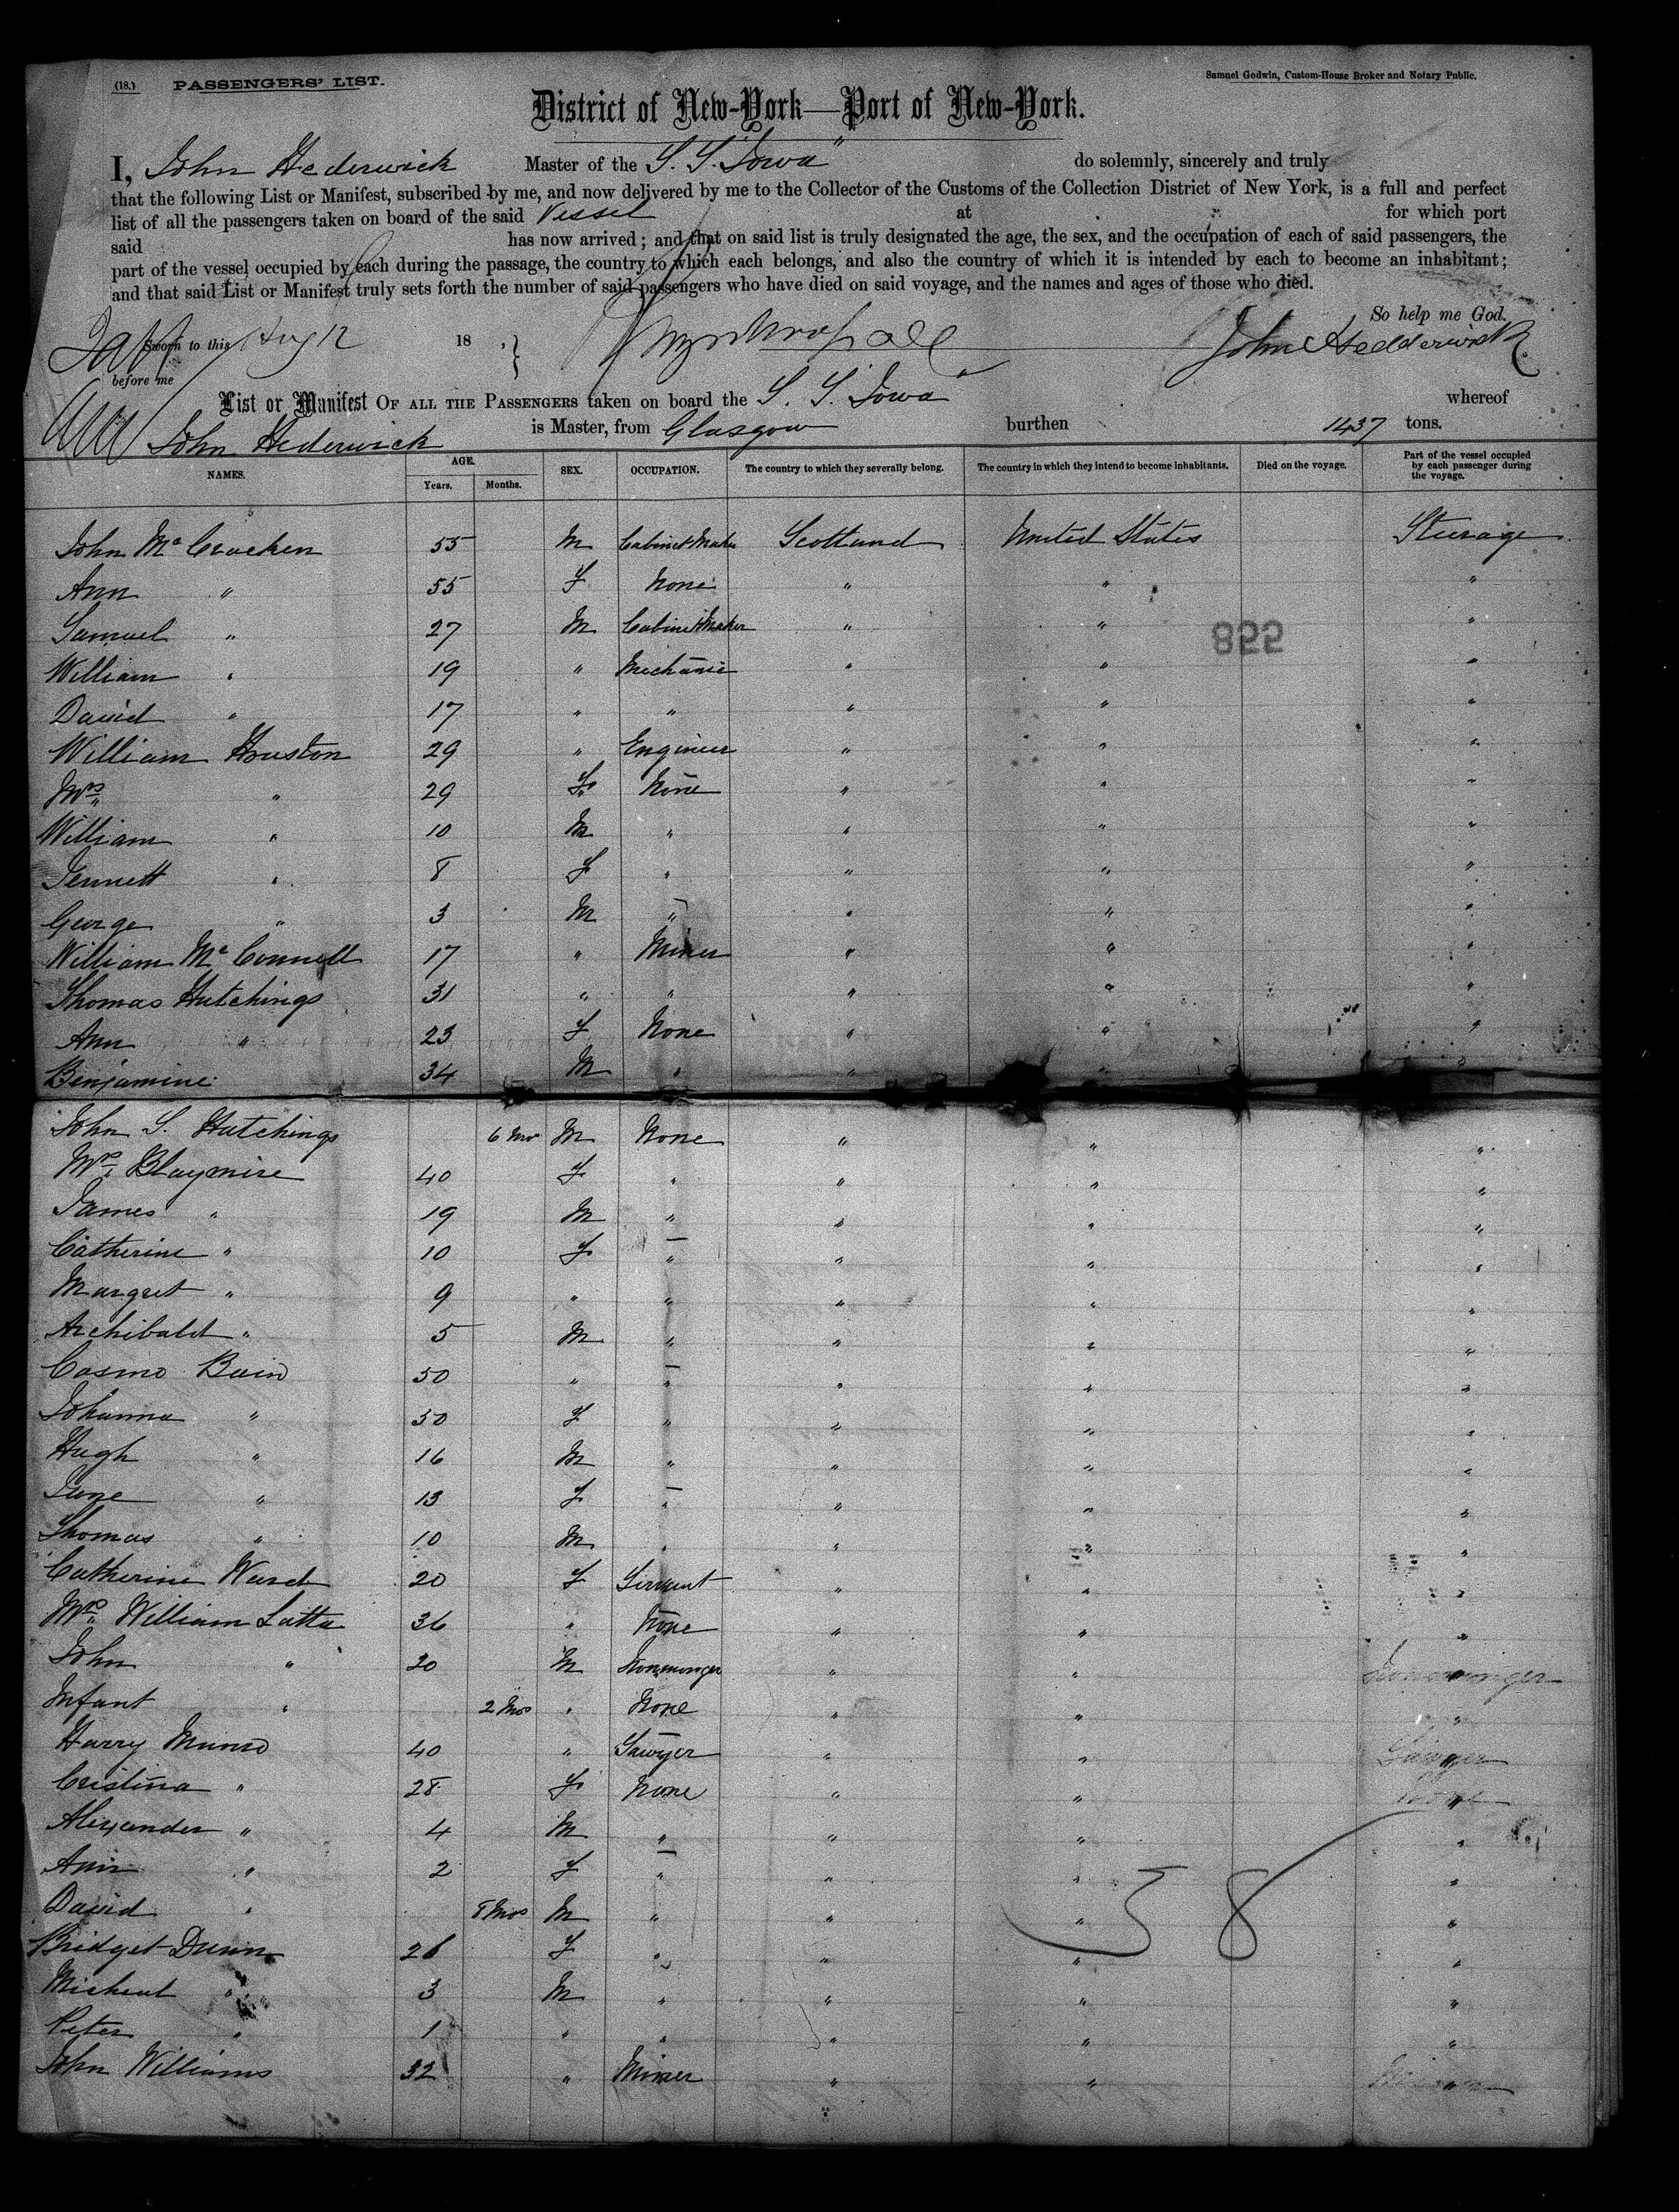 (18.) PASSENGERS' LIST.
Samuel Godwin, Custom-House Broker and Notary Public.
District of New-York—Port of New-York.
I, John Hederwick Master of the S. S. "Iowa" do solemnly, sincerely and truly
that the following List or Manifest, subscribed by me, and now delivered by me to the Collector of the Customs of the Collection District of New York, is a full and perfect
list of all the passengers taken on board of the said Vessel at for which port
said has now arrived; and that on said list is truly designated the age, the sex, and the occupation of each of said passengers, the
part of the vessel occupied by each during the passage, the country to which each belongs, and also the country of which it is intended by each to become an inhabitant;
and that said List or Manifest truly sets forth the number of said passengers who have died on said voyage, and the names and ages of those who died.
So help me God.
Sworn to this Aug 12 18 John Hedderwick
before me
List or Manifest OF ALL THE PASSENGERS taken on board the S. S. Iowa" whereof
John Hederwick is Master, from Glasgow burthen 1437 tons.
NAMES. AGE. Years. Months. SEX. OCCUPATION. The country to which they severally belong. The country in which they intend to become inhabitants. Died on the voyage. Part of the vessel occupied by each passenger during the voyage.
John McCracken 55 M Cabinet Maker Scotland United States Steerage
Ann " 55 F None " " "
Samuel " 27 M Cabinet Maker " " "
822
William " 19 " Mechanic " " "
David " 17 " " " " "
William Houston 29 " Engineer " " "
Mrs " 29 F None " " "
William " 10 M " " " "
Jennett " 8 F " " " "
George " 3 M " " " "
William McConnell 17 " Miner " " "
Thomas Hutchings 31 " " " " "
Ann " 23 F None " " "
Benjamine 34 M " " " "
John S. Hutchings 6 Mo M None " " "
Mrs Blaymire 40 F " " " "
James " 19 M " " " "
Catherine " 10 F " " " "
Margret " 9 " " " " "
Archibald " 5 M " " " "
Cosmo Bain 50 " " " " "
Johanna " 50 F " " " "
Hugh " 16 M " " " "
Jane " 13 F " " " "
Thomas " 10 M " " " "
Catherine Ward 20 F Servant " " "
Mrs William Latta 36 " None " " "
John " 20 M Ironmonger " " "
Infant " 2 Mos " None " " "
Harry Munro 40 " Sawyer " " "
Cristina " 28 F None " " "
Alexander " 4 M " " " "
Ann " 2 F " " " "
David " 8 Mos M " " " "
58
Bridget Dunn 26 F " " " "
Micheal " 3 M " " " "
Peter " 1 " " " " "
John Williams 32 " Miner " " "